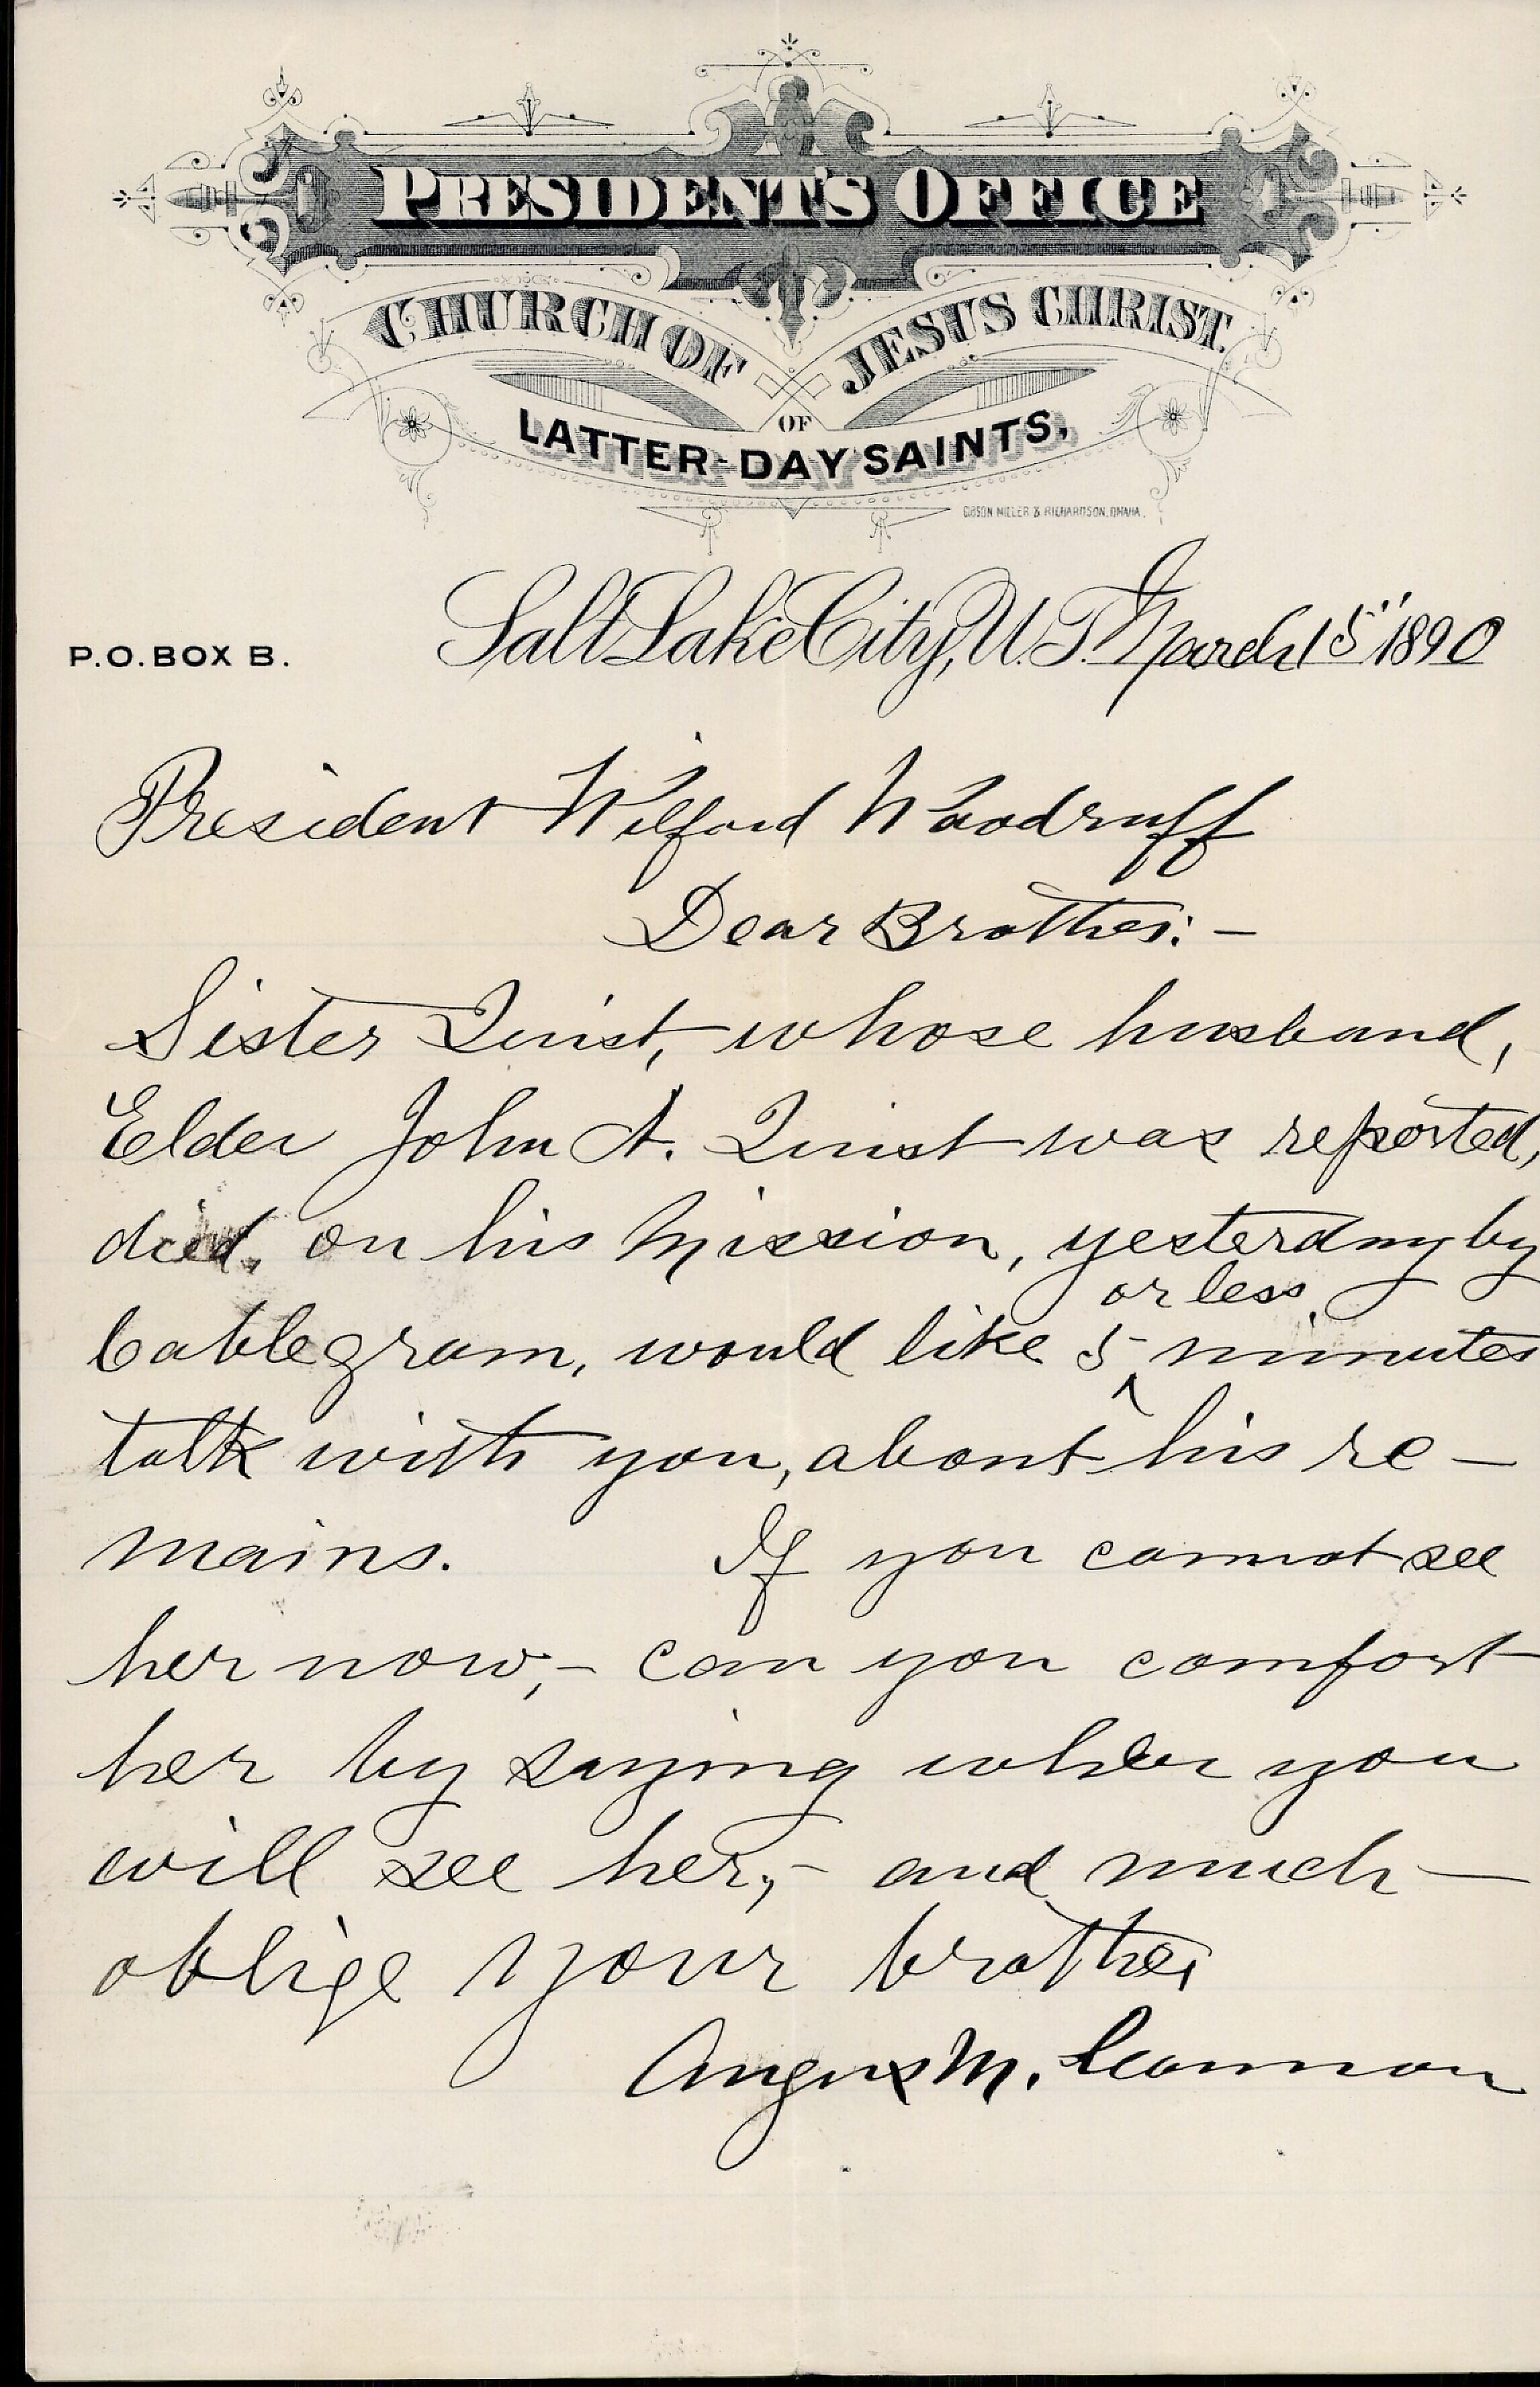 PRESIDENT'S OFFICE
CHURCH OF JESUS CHRIST
OF
LATTER-DAY SAINTS,
GIBSON MILLER & RICHARDSON, OMAHA.
P.O. BOX B. Salt Lake City, U.T. March 15" 1890
President Wilford Woodruff
Dear Brother:-
Sister Quist, whose husband,
Elder John A. Quist was reported,
died, on his Mission, yesterday by
or less
Cablegram, would like 5 ^ minutes
talk with you, about his re-
mains. If you cannot see
her now,- can you comfort
her by saying when you
will see her,- and much
oblige your brother
Angus M. Cannon